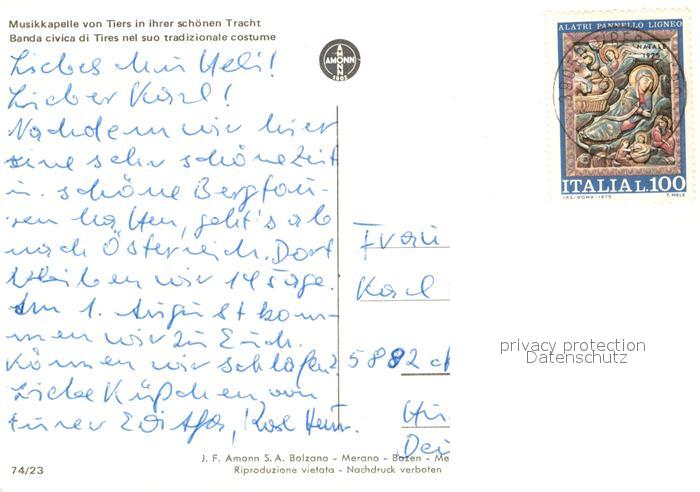 Musikkapelle von Tiers in ihrer schönen Tracht
Banda civica di Tires nel suo tradizionale costume
Liebes
Lieber Karl!
Nachdem wir hier
eine sehr schöne Zeit
u. schöne Bergtou-
ren hatten, geht's ab
nach Österreich. Dort
bleiben wir 14 Tage.
Am 1. August kom-
men wir zu Euch.
Können wir schlafen?
Liebe Küßchen von
Eurer Karl Heinz.
AMONN
1802
ALATRI PANNELLO LIGNEO
NATALE
1975
ITALIA L.100
I.P.S.-ROMA-1975
T. MELE
Frau
Karl
5882
Dei
privacy protection
Datenschutz
J. F. Amonn S.A. Bolzano - Merano - Bozen - Me
Riproduzione vietata - Nachdruck verboten
74/23